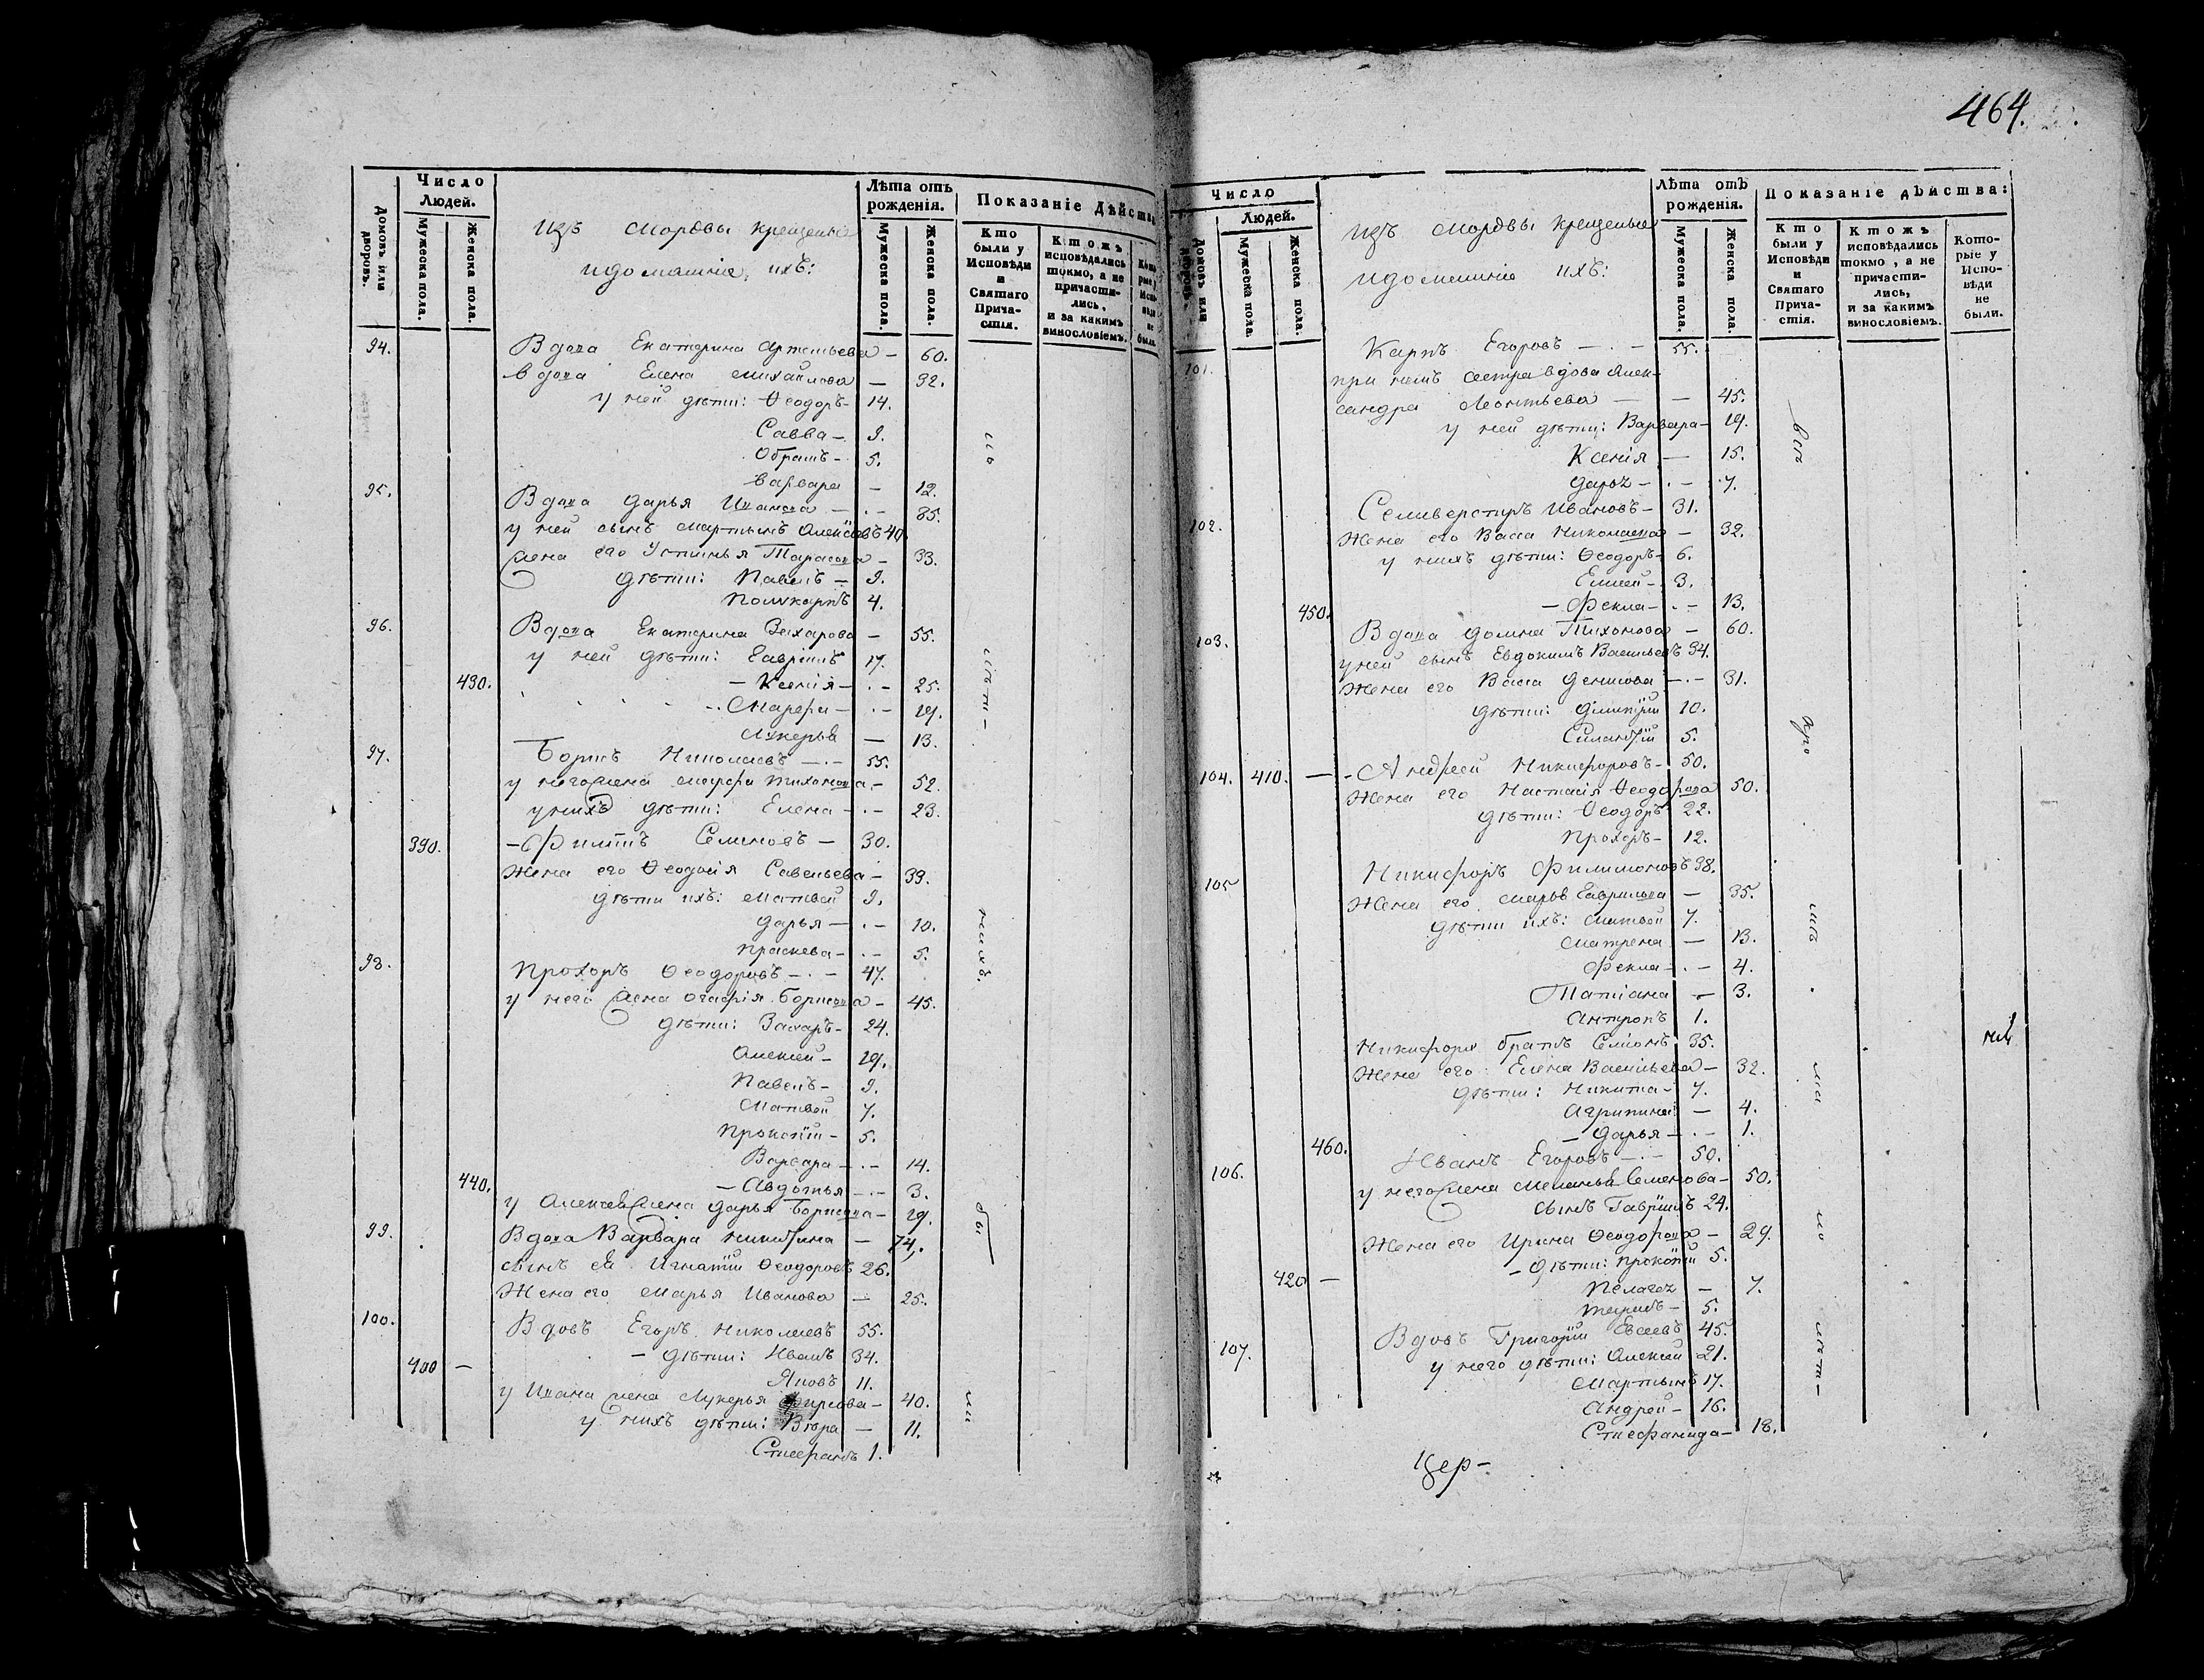 464.
Домовъ или дворовъ.
Число Людей.
Мужеска пола.
Женска пола.
Изъ Мордвы крещеные
и домашніе ихъ:
Лѣта отъ рожденія.
Мужеска пола.
Женска пола.
Показаніе дѣйства
Кто были у Исповѣди и Святаго Причастія.
Ктожъ исповѣдались токмо, а не причастились, и за какимъ винословіемъ.
94. Вдова Екатерина Артемьева — 60.
Вдова Елена Михайлова — 32.
у ней дѣти: Ѳеодоръ — 14.
Савва — 9.
5.
Варвара — 12.
95. Вдова Дарья Иванова — 85.
у ней сынъ Мартынъ Алексѣевъ 40.
Жена его Устинья Тарасова — 33.
дѣти: Павелъ — 9.
Поликарпъ 4.
96. Вдова Екатерина Захарова — 55.
у ней дѣти: Гавріилъ 17.
430. — Ксенія — 25.
Марефа — 19.
Лукерья — 13.
97. Борисъ Николаевъ — 55.
у него жена Марфа Тихонова — 52.
у нихъ дѣти: Елена — 23.
390. — Филипъ Семеновъ — 30.
Жена его Ѳеодосія Савельева — 33.
дѣти ихъ: Матвей 9.
Дарья — 10.
Праскева — 5.
98. Прохоръ Ѳеодоровъ — 47.
у него жена Огафія Борисова — 45.
дѣти: Захаръ — 24.
Алексей — 19.
Павелъ — 9.
Матвей 7.
Прокопій — 5.
Варвара — 14.
440. — Авдотья — 3.
у Алексея жена Дарья Борисова — 19.
99. Вдова Варвара Никитина — 74.
сынъ ея Игнатій Ѳеодоровъ 26.
Жена его Марья Иванова — 25.
100. Вдовъ Егоръ Николаевъ 55.
— дѣти: Иванъ 34.
400 — Яковъ 11.
у Ивана жена Лукерья — 40.
у нихъ дѣти: Вѣра — 11.
Стефанъ 1.
Домовъ или дворовъ.
Число Людей.
Мужеска пола.
Женска пола.
Изъ Мордвы крещеные
и домашніе ихъ:
Лѣта отъ рожденія.
Мужеска пола.
Женска пола.
Показаніе дѣйства:
Кто были у Исповѣди и Святаго Причастія.
Ктожъ исповѣдались токмо, а не причастились, и за какимъ винословіемъ.
Которые у Исповѣди не были.
101. Карпъ Егоровъ — 55.
при немъ сестра вдова Алек-
сандра Леонтьева — 45.
у ней дѣти: Варвара — 19.
Ксенія — 15.
Дарья — 7.
102. Селиверстръ Ивановъ — 31.
Жена его Васса Николаева — 32.
у нихъ дѣти: Ѳеодоръ — 6.
Елисей — 3.
450. — Фекла — 13.
103. Вдова Домна Тихонова — 60.
у ней сынъ Евдокимъ Васильевъ 34.
Жена его Васса Денисова — 31.
дѣти: Димитрій 10.
Силантій 5.
104. 410. — Андрей Никифоровъ — 50.
Жена его Настасія Ѳеодорова 50.
дѣти: Ѳеодоръ 22.
Прохоръ — 12.
105 Никифоръ Филимоновъ 38.
Жена его Марья Гаврилова — 35.
дѣти ихъ: Матвей 7.
Матрена — 13.
Фекла — 4.
Татіана — 3.
Антропъ 1.
Никифора братъ Семіонъ 35.
Жена его Елена Васильева — 32.
дѣти: Никита — 7.
Агрипина — 4.
460. — Дарья — 1.
106. Иванъ Егоровъ — 50.
у него жена Меланья Семенова — 50.
сынъ Гавріилъ 24.
Жена его Ирина Ѳеодорова — 29.
— дѣти: Прокопій 5.
420 — Пелагея — 7.
5.
107. Вдовъ Григорій Евсеевъ 45.
у него дѣти: Алексей 21.
Мартынъ 17.
Андрей — 16.
Стефанида — 18.
Цер-